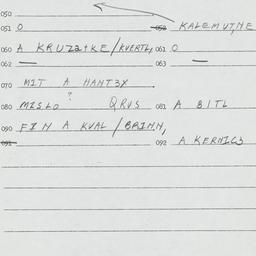 050
051 O 052 KALEMUT,NE
060 A KRUZATKE/KVERTL, 061 O
062 — 063 —
070 MIT A HANTZX
080 MISLO ? QRVS 081 A BITL
090 FIN A KVAL/BRINN,
091 092 A KERNIG3